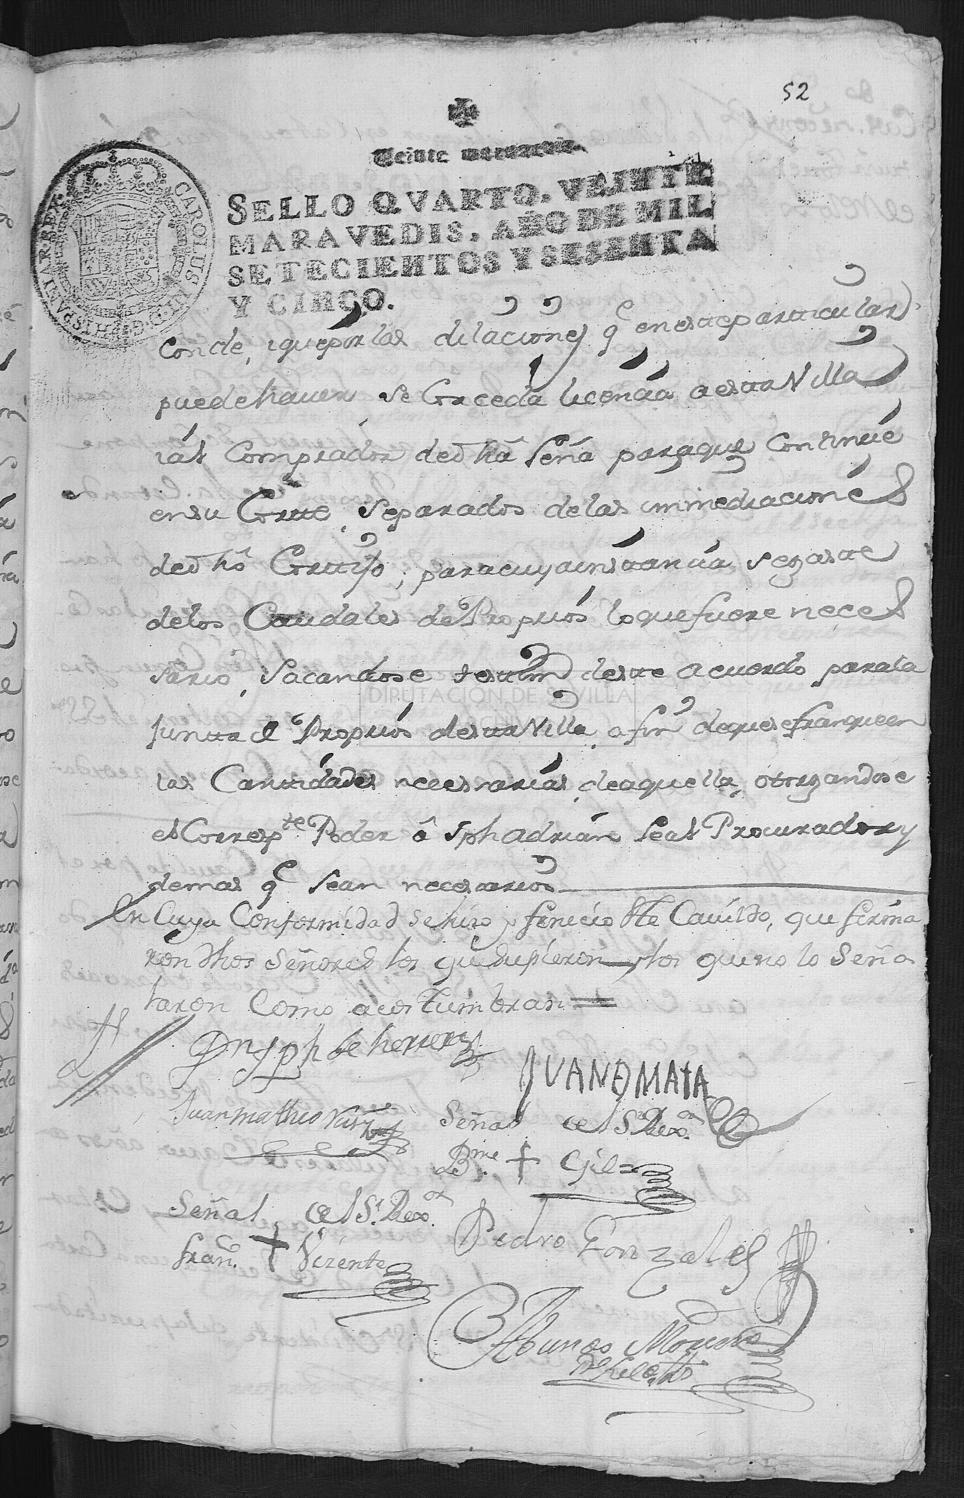 52
Veinte maravedis.
SELLO QVARTO. VEINTE
MARAVEDIS, AÑO DE MIL
SETECIENTOS Y SESENTA
Y CINCO.
CAROLUS III D.G. HISPANIAR REX
conde, i que por las dilaciones q̃ en este particular
puede haver se Conceda licencia a esta Villa
i al Comprador de dhã Señã para que Continúe
en su Corte, Separados de las immediaciones
de dhõ Cortijo; para cuya instancia se gaste
de los Caudales de Propios lo que fuere neces
sario, Sacandose testim deste acuerdo para la
Juntta de Propios desta Villa a fin de que se franqueen
las Cantidades necesarias, de aquella, otorgandose
el Corresp.te Poder â Jph Adrian Leal Procurador y
demas q̃ sean necesarios
En Cuya Conformidad se hizo y fenecio Este Cavildo, que firma
ron dhos Señores los q̃ supieron y los que no lo Seña
laron Como acostumbran =
Dn Jph de herrera
JUAN D MATA
Juan matheo
Señal del Sr. Rexor.
Bme + Gil
Señal del Sr. Rexor.
Fran.co + Vizente
Pedro Gonzales
Alfonso Moreno
DIPUTACIÓN DE SEVILLA